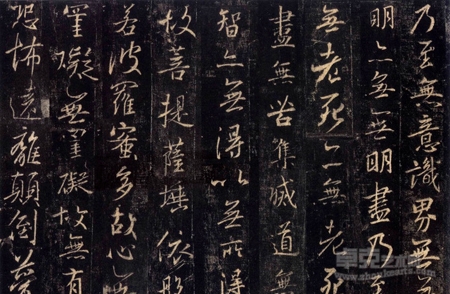 乃至無意識界無無
明亦無無明盡乃至
無老死亦無老死
盡無苦集滅道無
智亦無得以無所得
故菩提薩埵依般
若波羅蜜多故心無
罣礙無罣礙故無有
恐怖遠離顛倒夢
卓克艺术网
www.zhuokearts.com